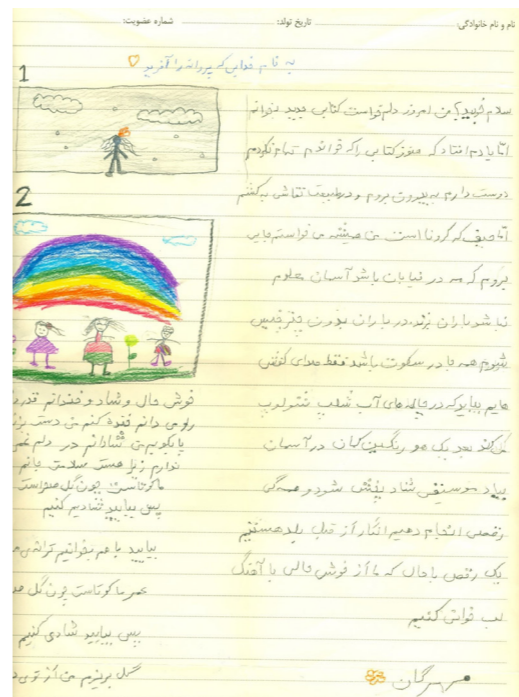 نام و نام خانوادگی: تاریخ تولد: شماره عضویت:
به نام خدایی که پروانه را آفرید
1
2
سلام خوبید؟ من امروز دلم خواست کتابی جدید بخوانم
اما یادم افتاد که هنوز کتابی را که خواندم تمام نکردم
دوست دارم به بیرون بروم و در طبیعت نقاشی بکشم
اما حیف که کرونا است من همیشه می خواستم جایی
بروم که مه در خیابان باشد آسمان معلوم
نباشد باران بزند در باران بدون چتر خیس
شوم همه جا در سکوت باشد فقط صدای کفش
هایم بیاید که در چاله های آب شلپ شلوپ
می کند بعد یک هو رنگین کمان در آسمان
بیاد موسیقی شاد پخش شود و همگی
رقصی انجام دهیم انگار از قبل بلد هستیم
یک رقص باحال که ما از خوش حالی با آهنگ
لب خوانی کنیم
مهرگان
خوش حال و شاد و خندانم قدر
رو می دانم خنده کنم من دست
پا بکوبم من شادانم در دلم غمی
ندارم زیرا هست سلامت جانم
عمر ما کوتاست چون گل صحراست
پس بیایید شادی کنیم
بیایید با هم بخوانیم ترانه‌ی
عمر ما کوتاست چون گل
پس بیایید شادی کنیم
گل بریزم من از توی